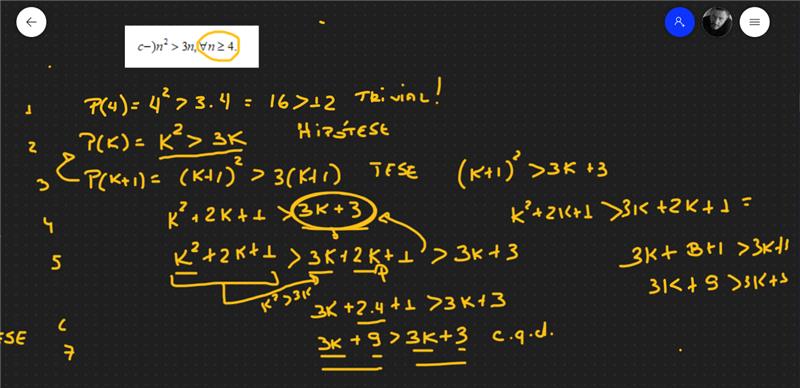 c-)n² > 3n,∀n ≥ 4.
1 P(4) = 4² > 3.4 = 16 > 12 TRIVIAL!
2 P(K) = K² > 3K HIPÓTESE
3 P(K+1) = (K+1)² > 3(K+1) TESE (K+1)² > 3K+3
4 K²+2K+1 > 3K+3 K²+2K+1 > 3K+2K+1 =
5 K²+2K+1 > 3K+2K+1 > 3K+3 3K+8+1 > 3K+3
K² > 3K 3K+9 > 3K+3
3K+2.4+1 > 3K+3
ESE 6
7 3K+9 > 3K+3 c.q.d.